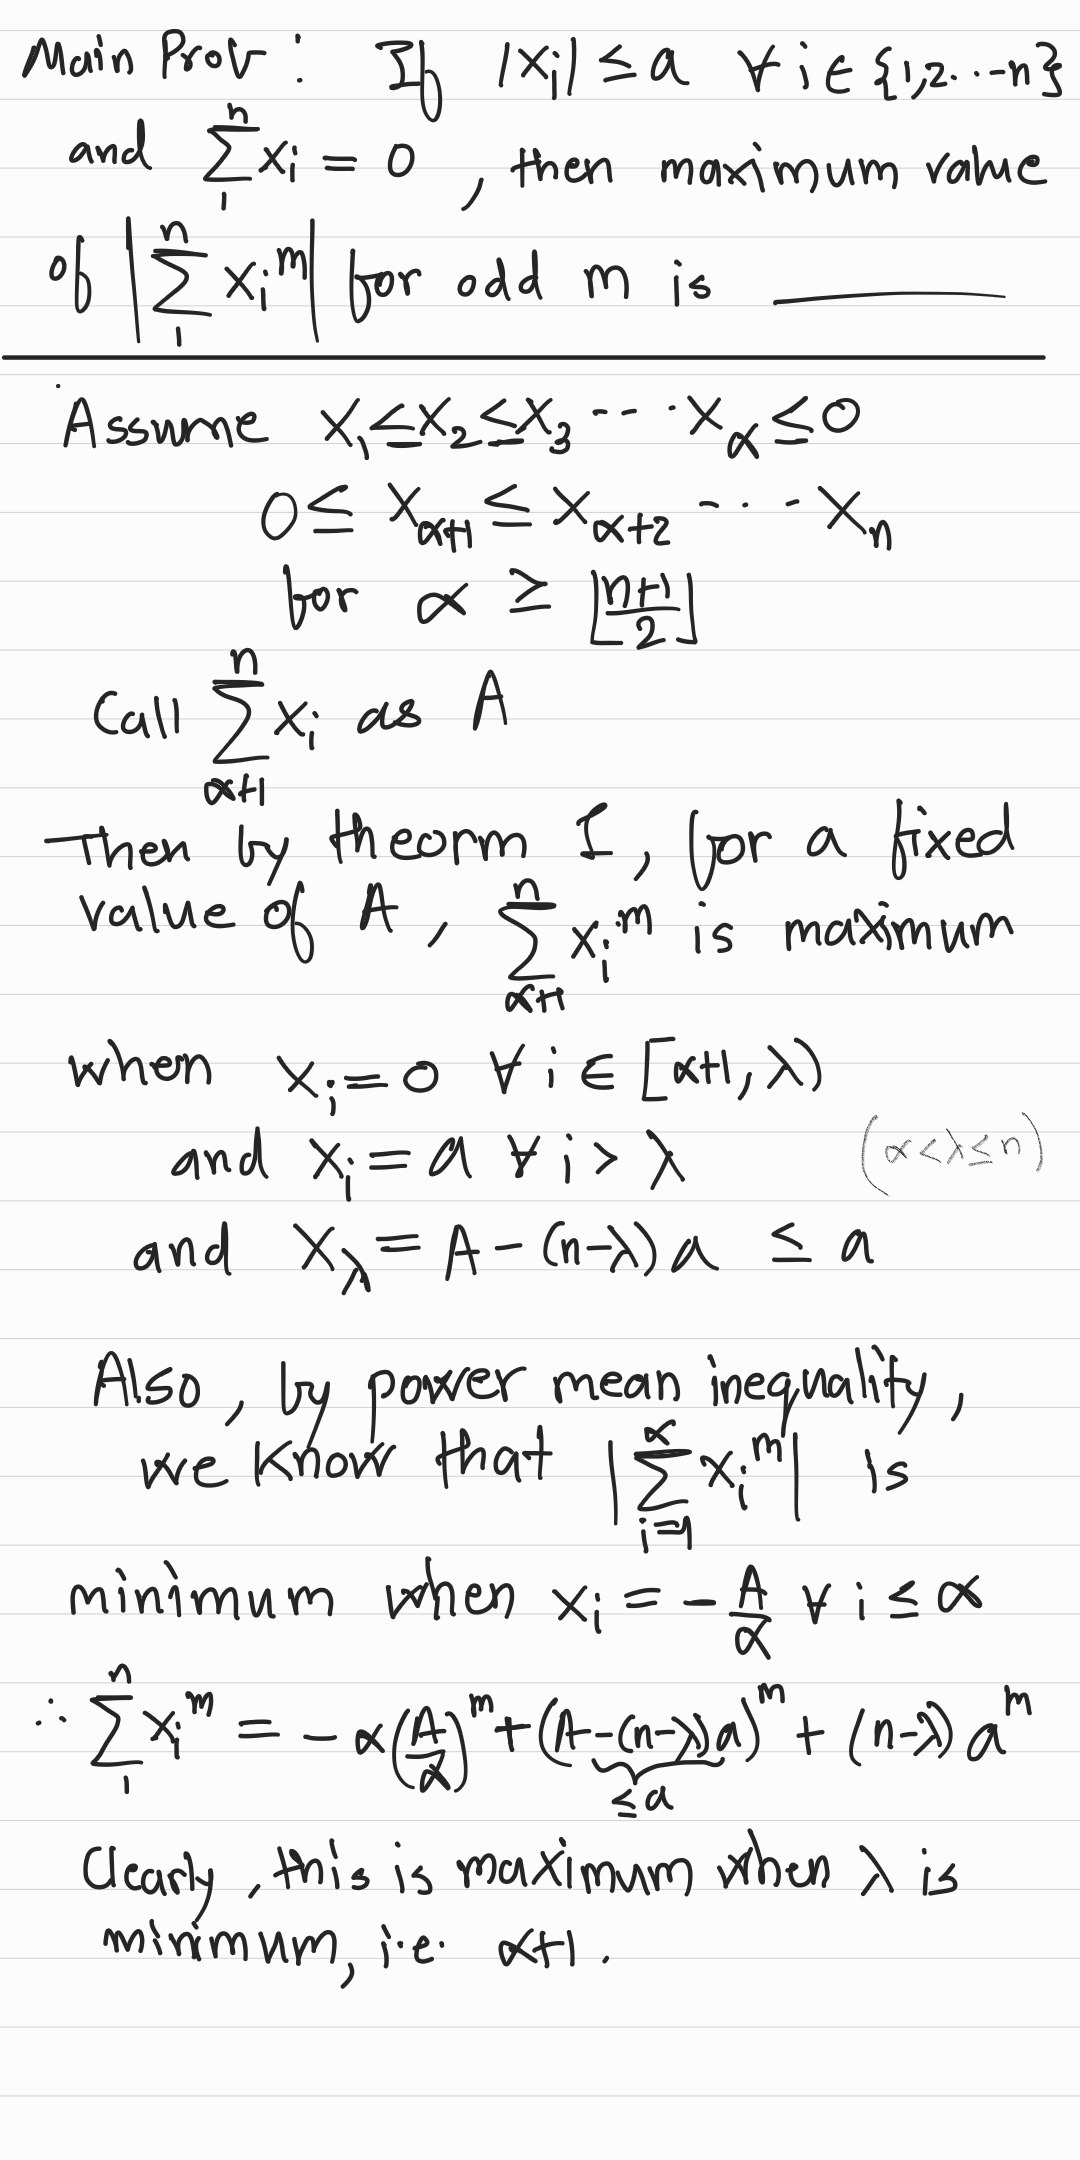 Main Prob: If |xᵢ| ≤ a ∀ i ∈ {1,2...-n}
and ∑₁ⁿ xᵢ = 0, then maximum value
of |∑₁ⁿ xᵢᵐ| for odd m is ______
Assume x₁ ≤ x₂ ≤ x₃ -- - · x_α ≤ 0
0 ≤ x_{α+1} ≤ x_{α+2} - · · - x_n
for α ≥ ⌊(n+1)/2⌋
Call ∑_{α+1}ⁿ xᵢ as A
Then by theorm I, for a fixed
value of A, ∑_{α+1}ⁿ xᵢᵐ is maximum
when xᵢ = 0 ∀ i ∈ [α+1, λ)
and xᵢ = a ∀ i > λ (α < λ ≤ n)
and x_λ = A - (n-λ)a ≤ a
Also, by power mean inequality,
we know that |∑_{i=1}^α xᵢᵐ| is
minimum when xᵢ = - A/α ∀ i ≤ α
∴ ∑₁ⁿ xᵢᵐ = - α(A/α)ᵐ + (A-(n-λ)a)ᵐ + (n-λ)aᵐ
≤ a
Clearly, this is maximum when λ is
minimum, i.e. α+1.